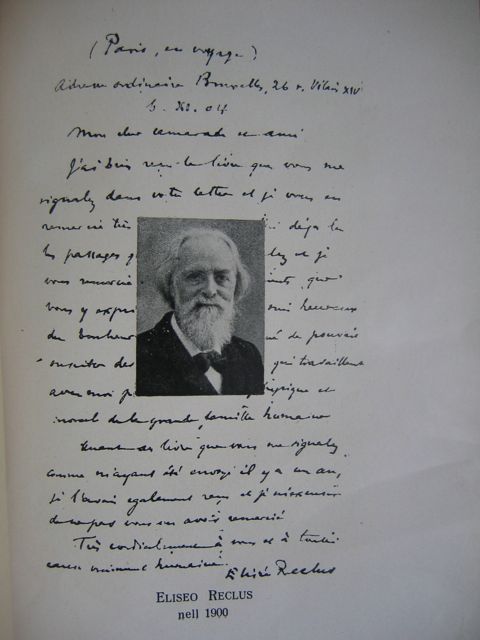 (Paris, en voyage)
Adresse ordinaire Bruxelles, 26 r. Vilain XIV
5. XI. 04
Mon cher camarade et ami
J'ai bien reçu le livre que vous me
signalez dans votre lettre et je vous en
remercie très déjà lu
les passages et je
vous remercie que
vous y heureux
du bonheur de pouvoir
susciter des qui travaillent
avec moi physique et
moral de la grande famille humaine
Quant au livre que vous me signalez
comme m'ayant été envoyé il y a un an,
je l'avais également reçu et je
de ne pas vous en avoir remercié
Très cordialement à vous et à toute
cause vraiment humaine.
Elisée Reclus
ELISEO RECLUS
nell 1900